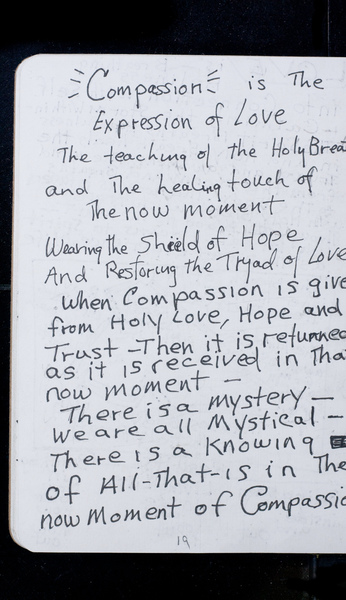 Compassion is The
Expression of Love
The teaching of the Holy Brea
and The healing touch of
The now moment
Wearing the Shield of Hope
And Restoring the Tryad of Love
when Compassion is give
from Holy Love, Hope and
Trust - Then it is returned
as it is received in Tha
now moment -
There is a mystery -
we are all Mystical -
There is a Knowing
of All-That-is in The
now Moment of Compassio
19